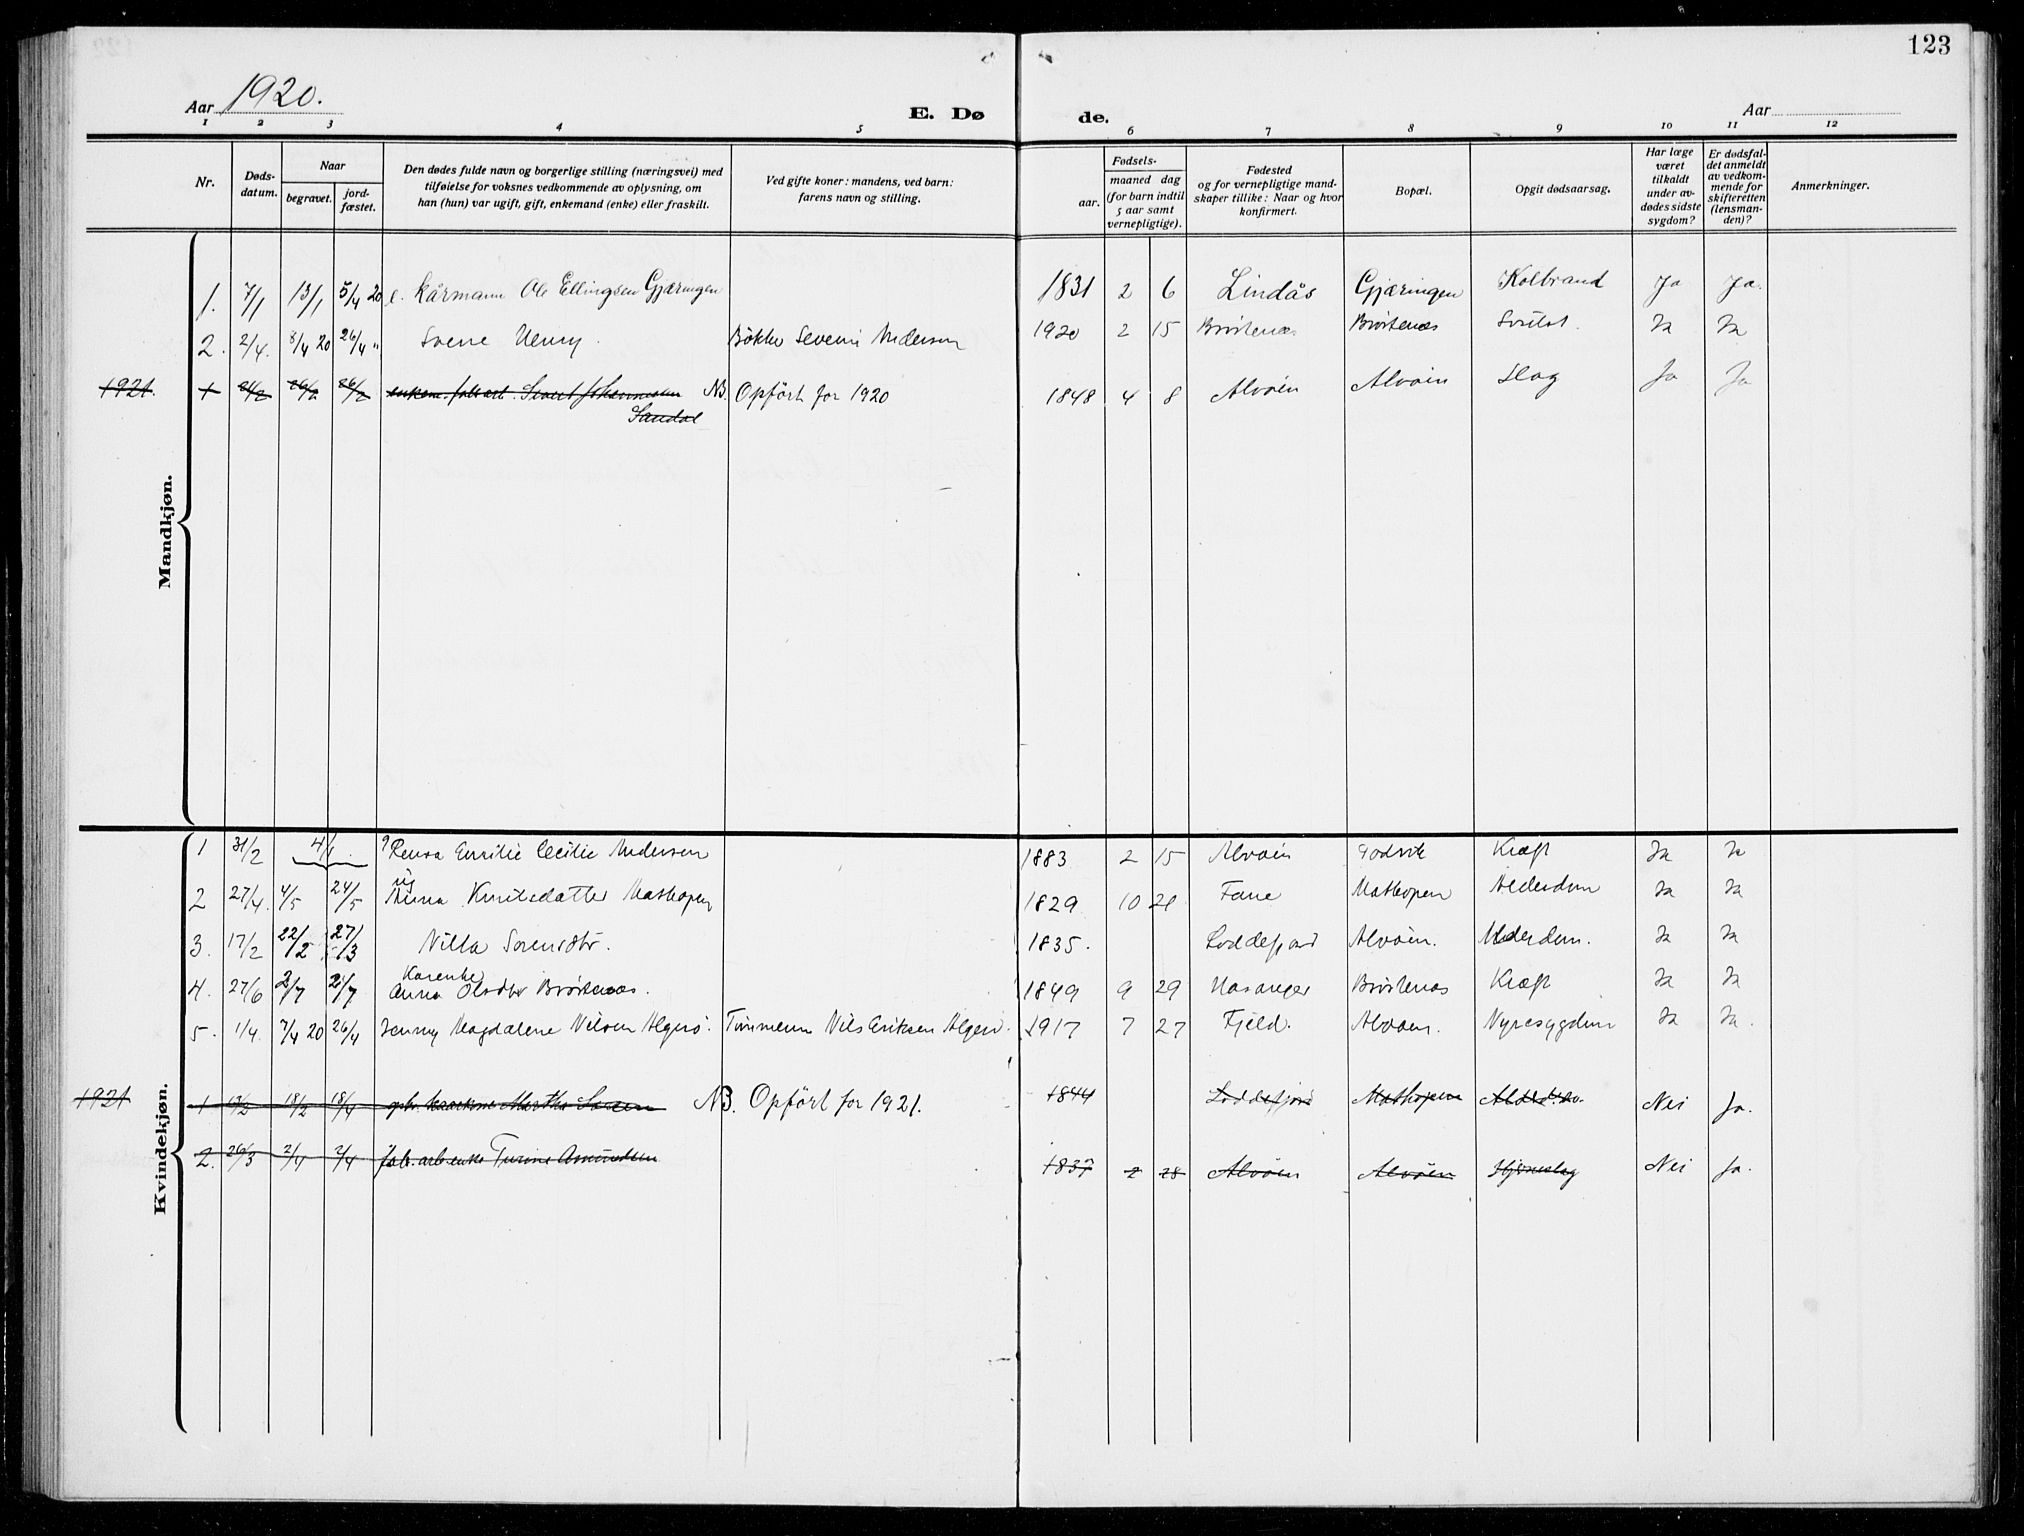 123
Aar 1920.
E. Dø de.
Aar
1 2 3 4 5 6 7 8 9 10 11 12
Nr.
Døds-
datum.
Naar
begravet.
jord-
fæstet.
Den dødes fulde navn og borgerlige stilling (næringsvei) med
tilføielse for voksnes vedkommende av oplysning, om
han (hun) var ugift, gift, enkemand (enke) eller fraskilt.
Ved gifte koner: mandens, ved barn:
farens navn og stilling.
Fødsels-
aar.
maaned dag
(for barn indtil
5 aar samt
vernepligtige).
Fødested
og for vernepligtige mand-
skaper tillike: Naar og hvor
konfirmert.
Bopæl.
Opgit dødsaarsag.
Har læge
været
tilkaldt
under av-
dødes sidste
sygdom?
Er dødsfal-
det anmeldt
av vedkom-
mende for
skifteretten
(lensman-
den)?
Anmerkninger.
Mandkjøn.
1. 7/1 13/1 5/4 20 e. Kårmann Ole Ellingsen Gjæringen 1831 2 6 Lindås Gjæringen Kolbrand Ja Ja.
2. 2/4. 8/4 20 26/4 " Henry. Bøkker Severin Andersen 1920 2 15 Brøstenæs Brøstenæs Ja Ja
1921. 1 26/2 26/2 Johannesen NB. Opført for 1920 1848 4 8 Alvøen Alvøen Slag Ja Ja
Sandal
Kvindekjøn.
1 31/2 4/1 Emilie Cecilie Andersen 1883 2 15 Alvøen Godvik Kræft Ja Ja
ug
2 27/4. 4/5 24/5 Anna Knutsdatter Mathopen 1829 10 Fane Mathopen Alderdom Ja Ja
3. 17/2 22/2 27/3 Villa 1835. Loddefjord Alvøen. Alderdom. Ja Ja
Karenke
4. 27/6 2/7 2/7 Anna Olsdtr Brøstenæs. 1849 9 29 Brøstenæs Kræft Ja Ja
5. 1/4. 7/4 20 26/4 Jenny Magdalene Nilsen Algerø. Tømmerm Nils Eriksen Algerø. 1917 7 27 Fjeld. Alvøen. Nyresygdom Ja Ja.
1921 1 13/2 18/2 18/4 Martha NB. Opført for 1921. 1844 Loddefjord Mathopen Nei Ja.
2. 26/3 2/4 2/4 fabr.arb.enke Turine Amundsen 1837 2 28 Alvøen Alvøen Hjerneslag Nei Ja.